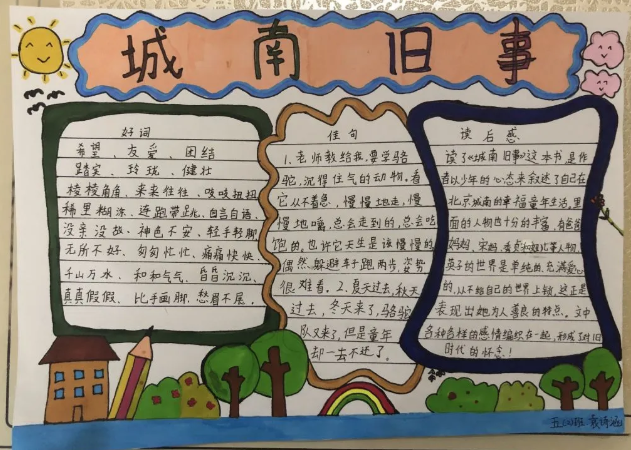 城南旧事
好词
希望、友爱、团结
踏实、玲珑、健壮
棱棱角角、来来往往、吱吱扭扭
稀里糊涂、连跑带跳、自言自语、
没亲没故、神色不安、轻手轻脚
无所不好、匆匆忙忙、痛痛快快、
千山万水、和和气气、昏昏沉沉、
真真假假、比手画脚、愁眉不展。
佳句
1、老师教给我,要学骆
驼,沉得住气的动物,看
它从不着急,慢慢地走,慢
慢地嚼,总会走到的,总会吃
饱的,也许它天生是该慢慢的
偶然躲避车子跑两步,姿势
很难看。2、夏天过去,秋天
过去,冬天来了,骆驼
队又来了,但是童年
却一去不还了。
读后感
读了《城南旧事》这本书是作
者以少年的心态来叙述了自己在
北京城南的幸福童年生活,里
面的人物也十分的丰富,有爸爸
妈妈、宋妈、秀贞和妞儿等人物,
英子的世界是单纯的,充满爱心
的,从不给自己的世界上锁,这正是
表现出她为人善良的特点。文中
各种各样的感情编织在一起,形成了对旧
时代的怀念!